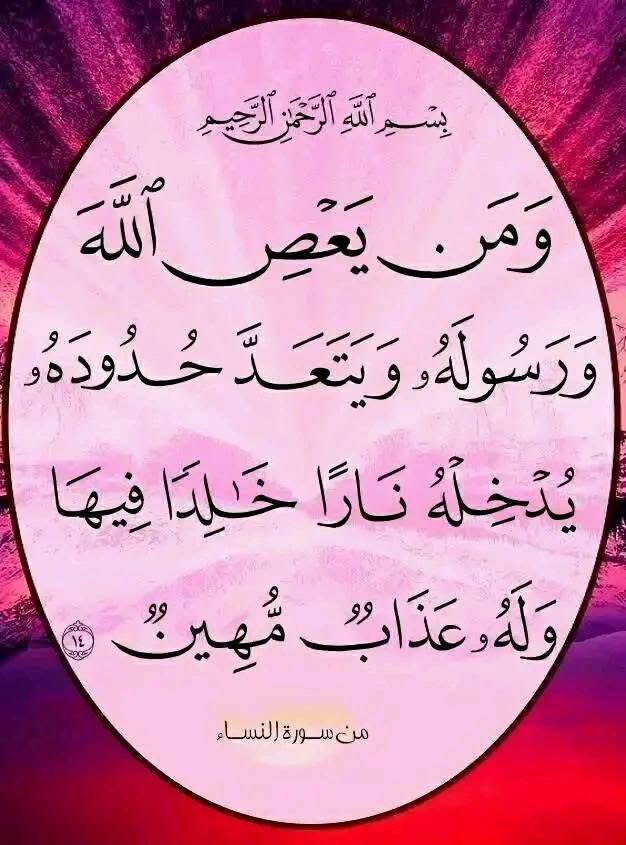 بِسْمِ ٱللَّهِ ٱلرَّحْمَٰنِ ٱلرَّحِيمِ
وَمَن يَعْصِ ٱللَّهَ
وَرَسُولَهُۥ وَيَتَعَدَّ حُدُودَهُۥ
يُدْخِلْهُ نَارًا خَٰلِدًا فِيهَا
وَلَهُۥ عَذَابٌ مُّهِينٌ ١٤
من سورة النساء